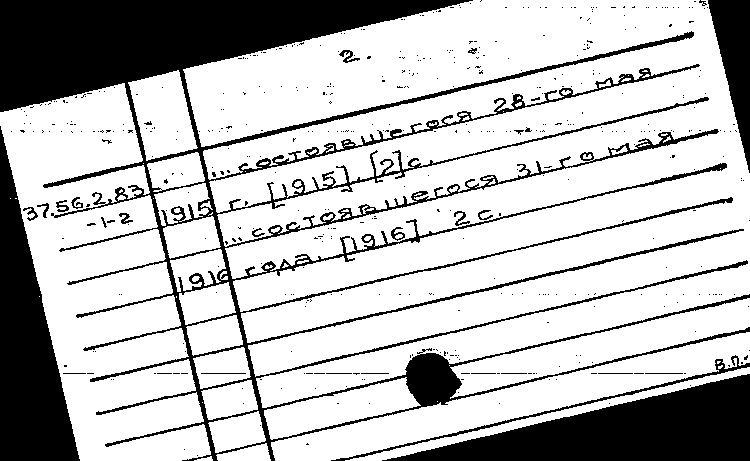 2.
37.56.2.83 ...состоявшегося 28-го мая
-1-2 1915 г. [1915]. [2]с.
...состоявшегося 31-го мая
1916 года. [1916]. 2с.
В.П.-